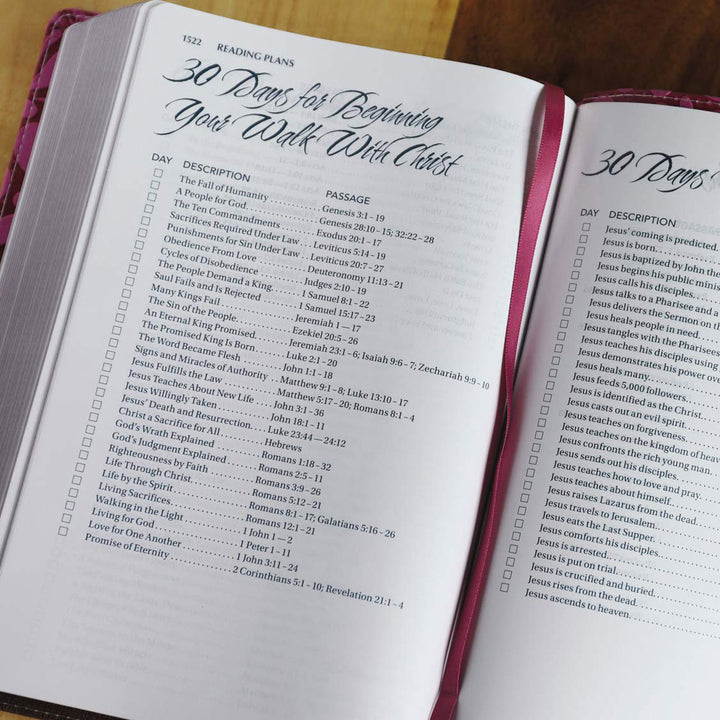 1522 READING PLANS
30 Days for Beginning
Your Walk With Christ
DAY DESCRIPTION PASSAGE
The Fall of Humanity ........ Genesis 3:1 - 19
A People for God ........ Genesis 28:10 - 15; 32:22 - 28
The Ten Commandments ........ Exodus 20:1 - 17
Sacrifices Required Under Law ... Leviticus 5:14 - 19
Punishments for Sin Under Law ... Leviticus 20:7 - 27
Obedience From Love ........ Deuteronomy 11:13 - 21
Cycles of Disobedience ........ Judges 2:10 - 19
The People Demand a King ........ 1 Samuel 8:1 - 22
Saul Fails and Is Rejected ........ 1 Samuel 15:17 - 23
Many Kings Fail ........ Jeremiah 1 — 17
The Sin of the People ........ Ezekiel 20:5 - 26
An Eternal King Promised ........ Jeremiah 23:1 - 6; Isaiah 9:6 - 7; Zechariah 9:9 - 10
The Promised King Is Born ........ Luke 2:1 - 20
The Word Became Flesh ........ John 1:1 - 18
Signs and Miracles of Authority .. Matthew 9:1 - 8; Luke 13:10 - 17
Jesus Fulfills the Law ........ Matthew 5:17 - 20; Romans 8:1 - 4
Jesus Teaches About New Life ... John 3:1 - 36
Jesus Willingly Taken ........ John 18:1 - 11
Jesus' Death and Resurrection ... Luke 23:44 — 24:12
Christ a Sacrifice for All ........ Hebrews
God's Wrath Explained ........ Romans 1:18 - 32
God's Judgment Explained ........ Romans 2:5 - 11
Righteousness by Faith ........ Romans 3:9 - 26
Life Through Christ ........ Romans 5:12 - 21
Life by the Spirit ........ Romans 8:1 - 17; Galatians 5:16 - 26
Living Sacrifices ........ Romans 12:1 - 21
Walking in the Light ........ 1 John 1 — 2
Living for God ........ 1 Peter 1 - 11
Love for One Another ........ 1 John 3:11 - 24
Promise of Eternity ........ 2 Corinthians 5:1 - 10; Revelation 21:1 - 4
30 Days
DAY DESCRIPTION
Jesus' coming is predicted.
Jesus is born.
Jesus is baptized by John the
Jesus begins his public minis
Jesus calls his disciples.
Jesus talks to a Pharisee and a
Jesus delivers the Sermon on
Jesus heals people in need.
Jesus tangles with the Pharisees
Jesus teaches his disciples using
Jesus demonstrates his power ove
Jesus heals many.
Jesus feeds 5,000 followers.
Jesus is identified as the Christ.
Jesus casts out an evil spirit.
Jesus teaches on forgiveness.
Jesus teaches on the kingdom of heav
Jesus confronts the rich young man.
Jesus sends out his disciples.
Jesus teaches how to love and pray.
Jesus teaches about himself.
Jesus raises Lazarus from the dead.
Jesus travels to Jerusalem.
Jesus eats the Last Supper.
Jesus comforts his disciples.
Jesus is arrested.
Jesus is put on trial.
Jesus is crucified and buried.
Jesus rises from the dead.
Jesus ascends to heaven.